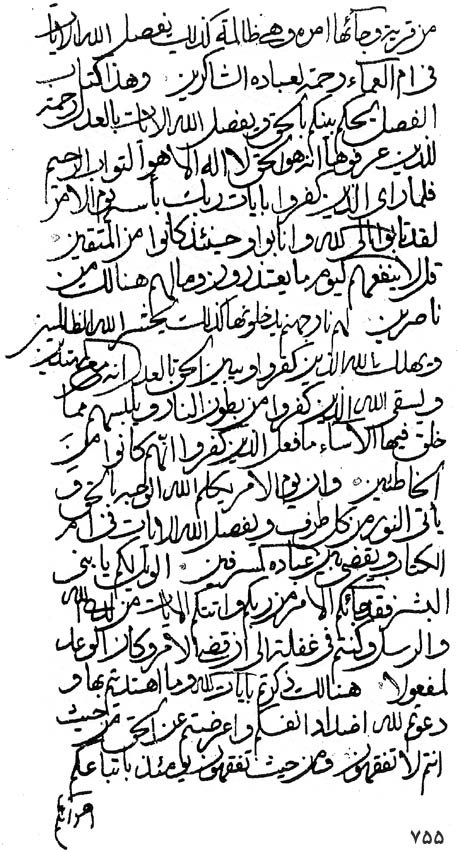 من قرية وجائها امره وهي ظالمة كذلك يفصل الله الايات
في ام العماء رحمة لعباده الشاكرين وهذا كتاب
الفصل يحكم بينكم بالحق ويفصل الله الايات بالعدل رحمة
للذين عرفوها انه هو الحق لا اله الا هو التواب الرحيم
فلما راى الذين كفروا بايات ربك بأسهم يوم الامر
لقد تابوا الى الله وانابوا وحينئذ كانوا من المتقين
قل لا ينفعهم اليوم ما يعتذرون وما لهم هنالك من
ناصرين لهم نار جهنم يدخلونها كذلك يحشر الله الظالمين
ويهلك الله الذين كفروا ويبين الحق بالعدل انه مع المهتدين
ويسقى الله الذين كفروا من بطون النار ويلبسهم مما
خلق فيها الاشاء ما فعل الذين كفروا انهم كانوا من
الخاطئين وان يوم الامر يكلم الله الوحيه بالحق و
يأتى النور من كل طرف ويفصل الله الايات في ام
الكتاب ويقضى بين عباده المسرفين الويل لكم يا بنى
البشر فقد جائكم الامر من ربكم واتتكم الايات من لدى الله
والرسل وكنتم في غفلة الى ان قضى الامر وكان الوعد
لمفعولا هنالك ذكرتم بايات الله وما اهتديتم بها و
دعوتم لله اضدادا انفسكم واعرضتم عن الحق من حيث
انتم لا تفقهون ومن حيث تفقهون يومئذ باتباعكم
٧٥٥